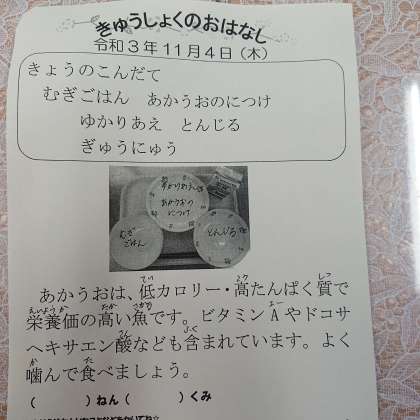 きゅうしょくのおはなし
令和3年11月4日(木)
きょうのこんだて
むぎごはん あかうおのにつけ
ゆかりあえ とんじる
ぎゅうにゅう
ゆかりあえ
あかうおの
につけ
むぎ
ごはん
とんじる
あかうおは、低カロリー・高たんぱく質で
栄養価の高い魚です。ビタミンAやドコサ
ヘキサエン酸なども含まれています。よく
噛んで食べましょう。
( )ねん( )くみ